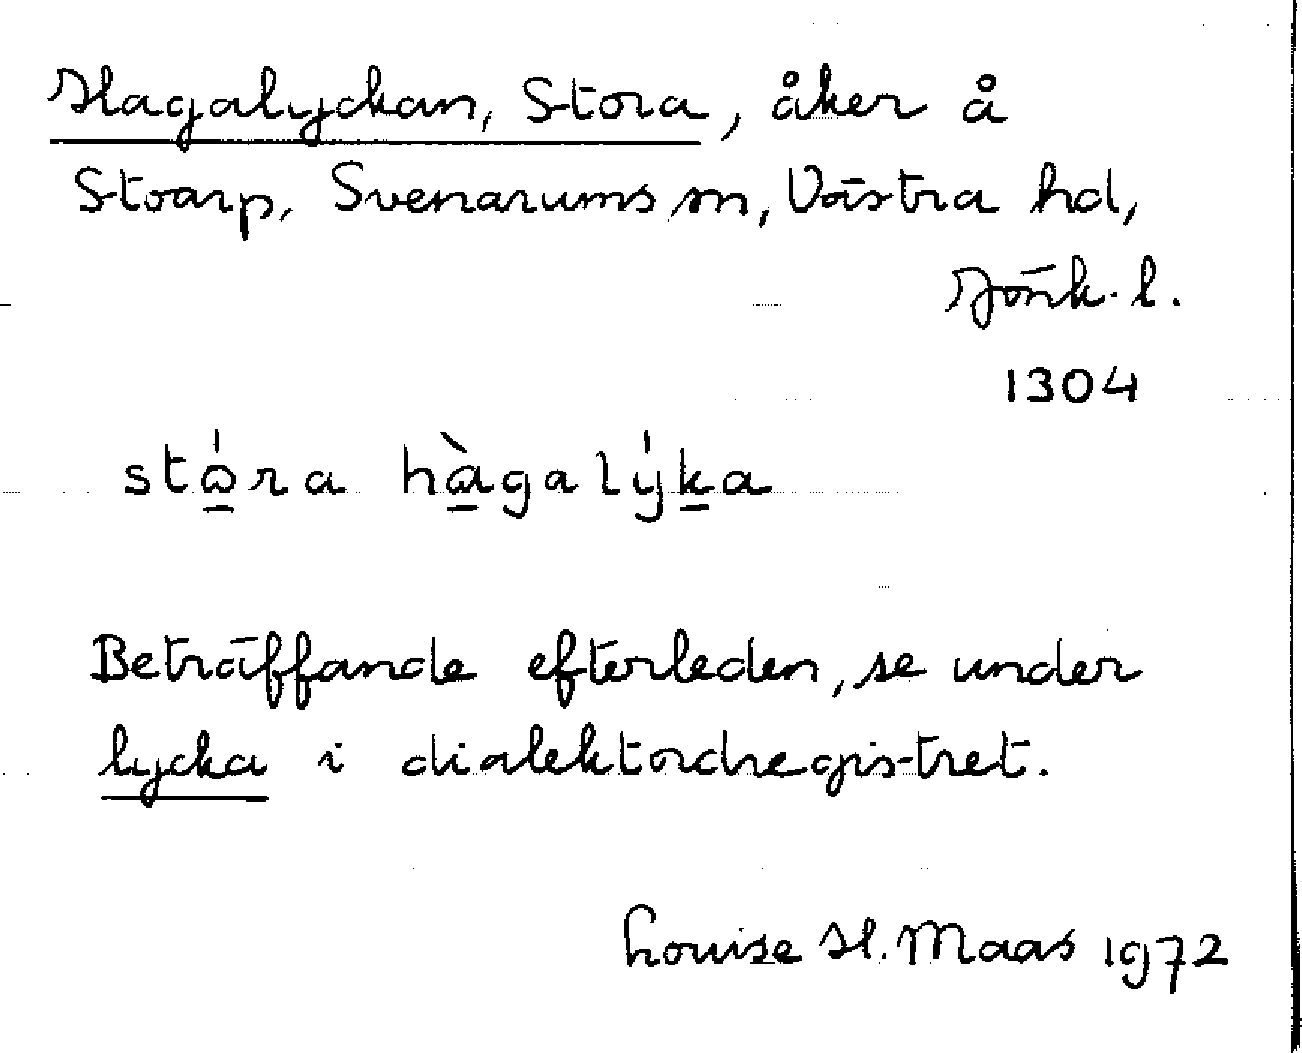 Hagalyckan, Stora, åker å
Stoarp, Svenarums sn, Västra hd,
Jönk. l.
1304
stώ̱ra hà̱galýḵa
Beträffande efterleden, se under
lycka i dialektordregistret.
Louise H. Maas 1972